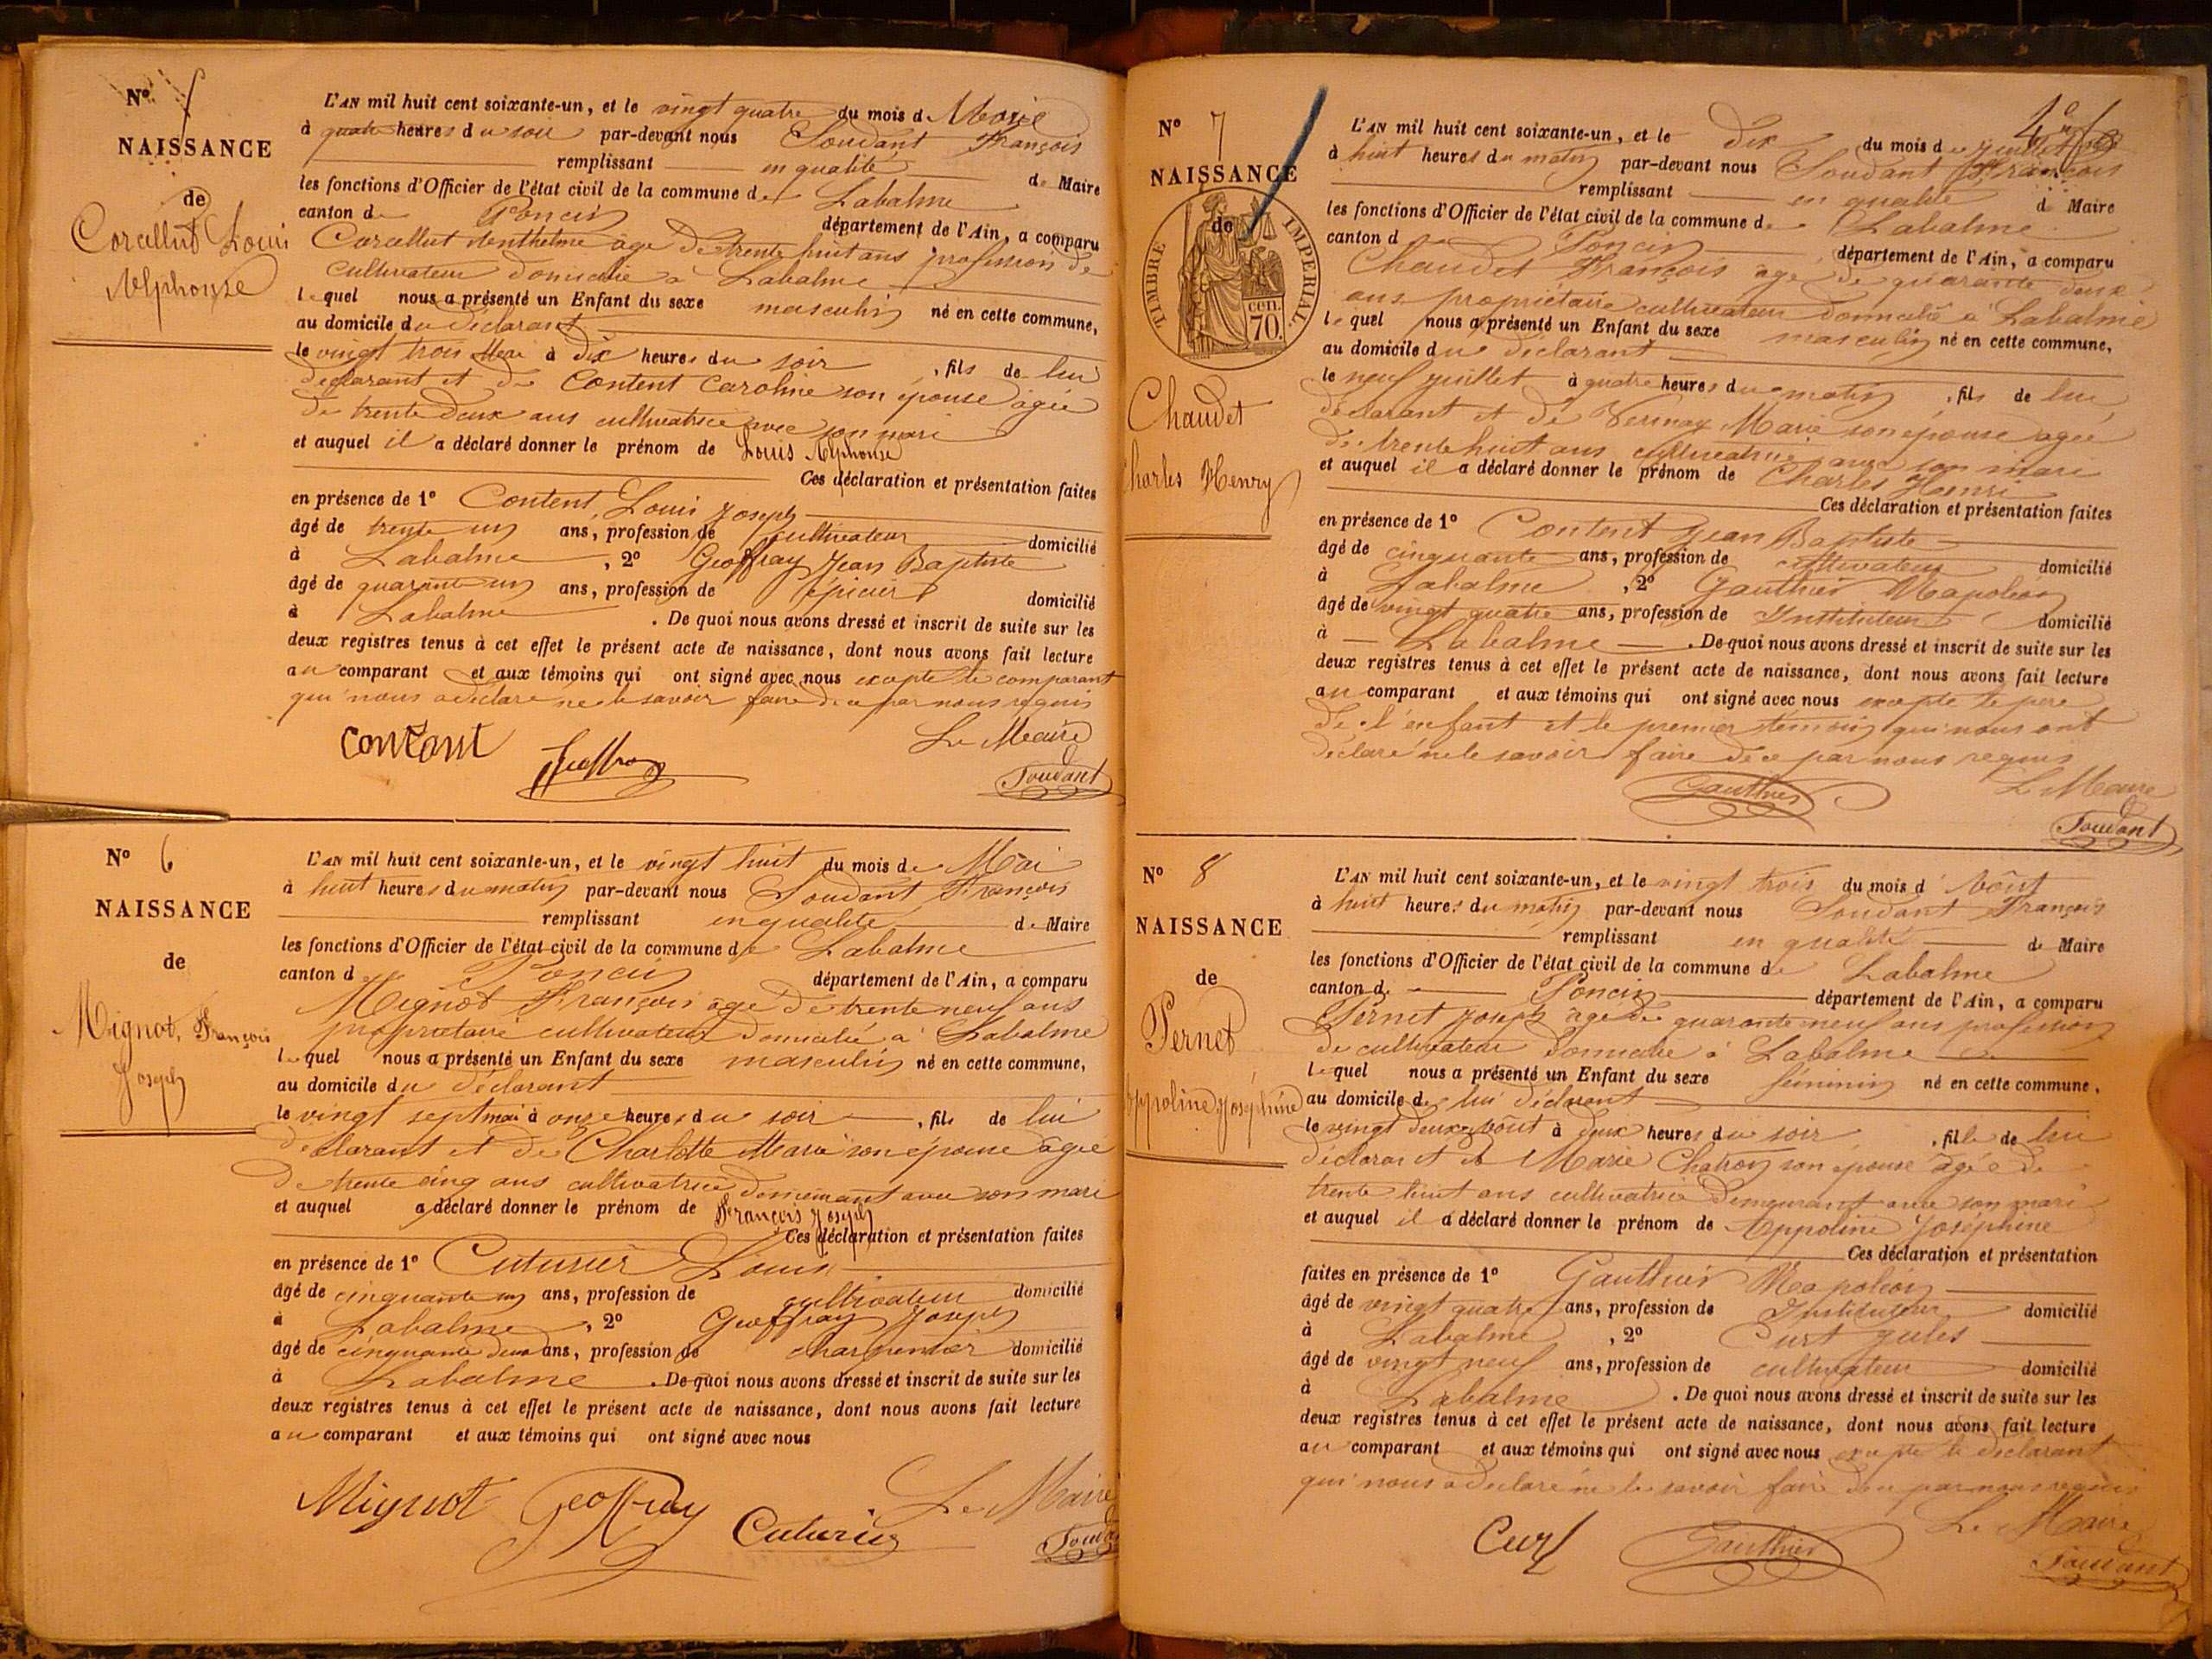 N°
NAISSANCE
de
Corcellut Louis
Alphonse
L'AN mil huit cent soixante-un, et le vingt quatre du mois de Mai
à quatre heures du soir par-devant nous Soudant François
remplissant en qualité de Maire
les fonctions d'Officier de l'état civil de la commune de Labalme
canton de Poncin département de l'Ain, a comparu
Corcellut Anthelme âgé de trente huit ans profession de
cultivateur domicilié à Labalme
lequel nous a présenté un Enfant du sexe masculin né en cette commune,
au domicile du déclarant
le vingt trois Mai à dix heures du soir, fils de lui
déclarant et de Content Caroline son épouse âgée
de trente deux ans cultivatrice avec son mari
et auquel il a déclaré donner le prénom de Louis Alphonse
Ces déclaration et présentation faites
en présence de 1° Content Louis Joseph
âgé de trente un ans, profession de cultivateur domicilié
à Labalme, 2° Geoffray Jean Baptiste
âgé de quarante un ans, profession de épicier domicilié
à Labalme. De quoi nous avons dressé et inscrit de suite sur les
deux registres tenus à cet effet le présent acte de naissance, dont nous avons fait lecture
au comparant et aux témoins qui ont signé avec nous excepté le comparant
qui nous a déclaré ne le savoir faire de ce par nous requis
Le Maire
Content Geoffray Soudant
N° 6
NAISSANCE
de
Mignot, François
Joseph
L'AN mil huit cent soixante-un, et le vingt huit du mois de Mai
à huit heures du matin par-devant nous Soudant François
remplissant en qualité de Maire
les fonctions d'Officier de l'état civil de la commune de Labalme
canton de Poncin département de l'Ain, a comparu
Mignot François âgé de trente neuf ans
propriétaire cultivateur domicilié à Labalme
lequel nous a présenté un Enfant du sexe masculin né en cette commune,
au domicile du déclarant
le vingt sept mai à onze heures du soir, fils de lui
déclarant et de Charlotte Marie son épouse âgée
de trente cinq ans cultivatrice demeurant avec son mari
et auquel a déclaré donner le prénom de François Joseph
Ces déclaration et présentation faites
en présence de 1° Cuturier Louis
âgé de cinquante un ans, profession de cultivateur domicilié
à Labalme, 2° Geoffray Joseph
âgé de cinquante deux ans, profession de charpentier domicilié
à Labalme. De quoi nous avons dressé et inscrit de suite sur les
deux registres tenus à cet effet le présent acte de naissance, dont nous avons fait lecture
au comparant et aux témoins qui ont signé avec nous
Le Maire
Mignot Geoffray Cuturier
N° 7
NAISSANCE
de
TIMBRE IMPERIAL
70 cen.
Chaudet
Charles Henry
L'AN mil huit cent soixante-un, et le dix du mois de juillet
à huit heures du matin par-devant nous Soudant François
remplissant en qualité de Maire
les fonctions d'Officier de l'état civil de la commune de Labalme
canton d Poncin département de l'Ain, a comparu
Chaudet François âgé de quarante deux
ans propriétaire cultivateur domicilié à Labalme
lequel nous a présenté un Enfant du sexe masculin né en cette commune,
au domicile du déclarant
le neuf juillet à quatre heures du matin, fils de lui
déclarant et de Vernay Marie son épouse âgée
de trente huit ans cultivatrice avec son mari
et auquel il a déclaré donner le prénom de Charles Henri
Ces déclaration et présentation faites
en présence de 1° Content Jean Baptiste
âgé de cinquante ans, profession de cultivateur domicilié
à Labalme, 2° Gauthier Napoléon
âgé de vingt quatre ans, profession de Instituteur domicilié
à Labalme. De quoi nous avons dressé et inscrit de suite sur les
deux registres tenus à cet effet le présent acte de naissance, dont nous avons fait lecture
au comparant et aux témoins qui ont signé avec nous excepté le père
de l'enfant et le premier témoin qui nous ont
déclaré ne le savoir faire de ce par nous requis
Le Maire
Gauthier Soudant
N° 8
NAISSANCE
de
Pernet
Appoline Joséphine
L'AN mil huit cent soixante-un, et le vingt trois du mois d'Août
à huit heures du matin par-devant nous Soudant François
remplissant en qualité de Maire
les fonctions d'Officier de l'état civil de la commune de Labalme
canton de Poncin département de l'Ain, a comparu
Pernet Joseph âgé de quarante neuf ans profession
de cultivateur domicilié à Labalme
lequel nous a présenté un Enfant du sexe féminin né en cette commune,
au domicile de lui déclarant
le vingt deux Août à deux heures du soir, fille de lui
déclarant et de Marie Chatron son épouse âgée de
trente huit ans cultivatrice demeurant avec son mari
et auquel il a déclaré donner le prénom de Appoline Joséphine
Ces déclaration et présentation
faites en présence de 1° Gauthier Napoléon
âgé de vingt quatre ans, profession de Instituteur domicilié
à Labalme, 2° Curt Jules
âgé de vingt neuf ans, profession de cultivateur domicilié
à Labalme. De quoi nous avons dressé et inscrit de suite sur les
deux registres tenus à cet effet le présent acte de naissance, dont nous avons fait lecture
au comparant et aux témoins qui ont signé avec nous excepté le déclarant
qui nous a déclaré ne le savoir faire de ce par nous requis
Le Maire
Curt Gauthier Soudant